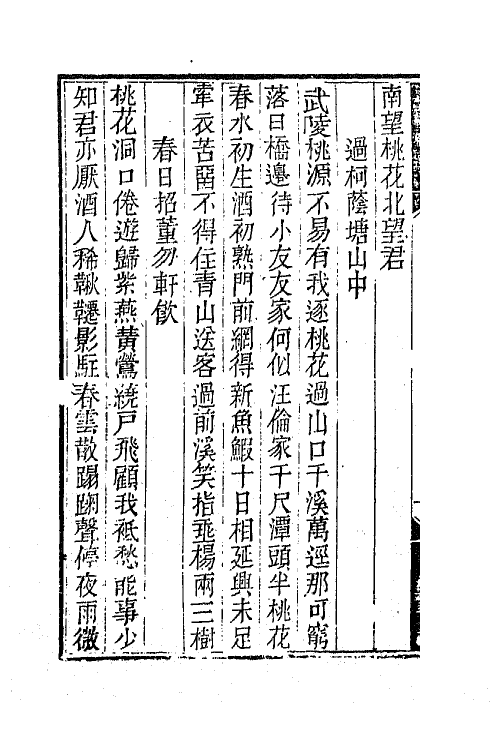 南望桃花北望君
過柯蔭塘山中
武陵桃源不易有我逐桃花過山口千溪萬逕那可窮
落日橋邉待小友友家何似汪倫家千尺潭頭半桃花
春水初生酒初熟門前網得新魚鰕十日相延興未足
牽衣苦留不得住青山送客過前溪笑指垂楊兩三樹
春日招董勿軒飲
桃花洞口倦遊歸紫燕黄鶯繞戸飛顧我祗愁能事少
知君亦厭酒人稀鞦韆影駐春雲散蹋踘聲停夜雨微